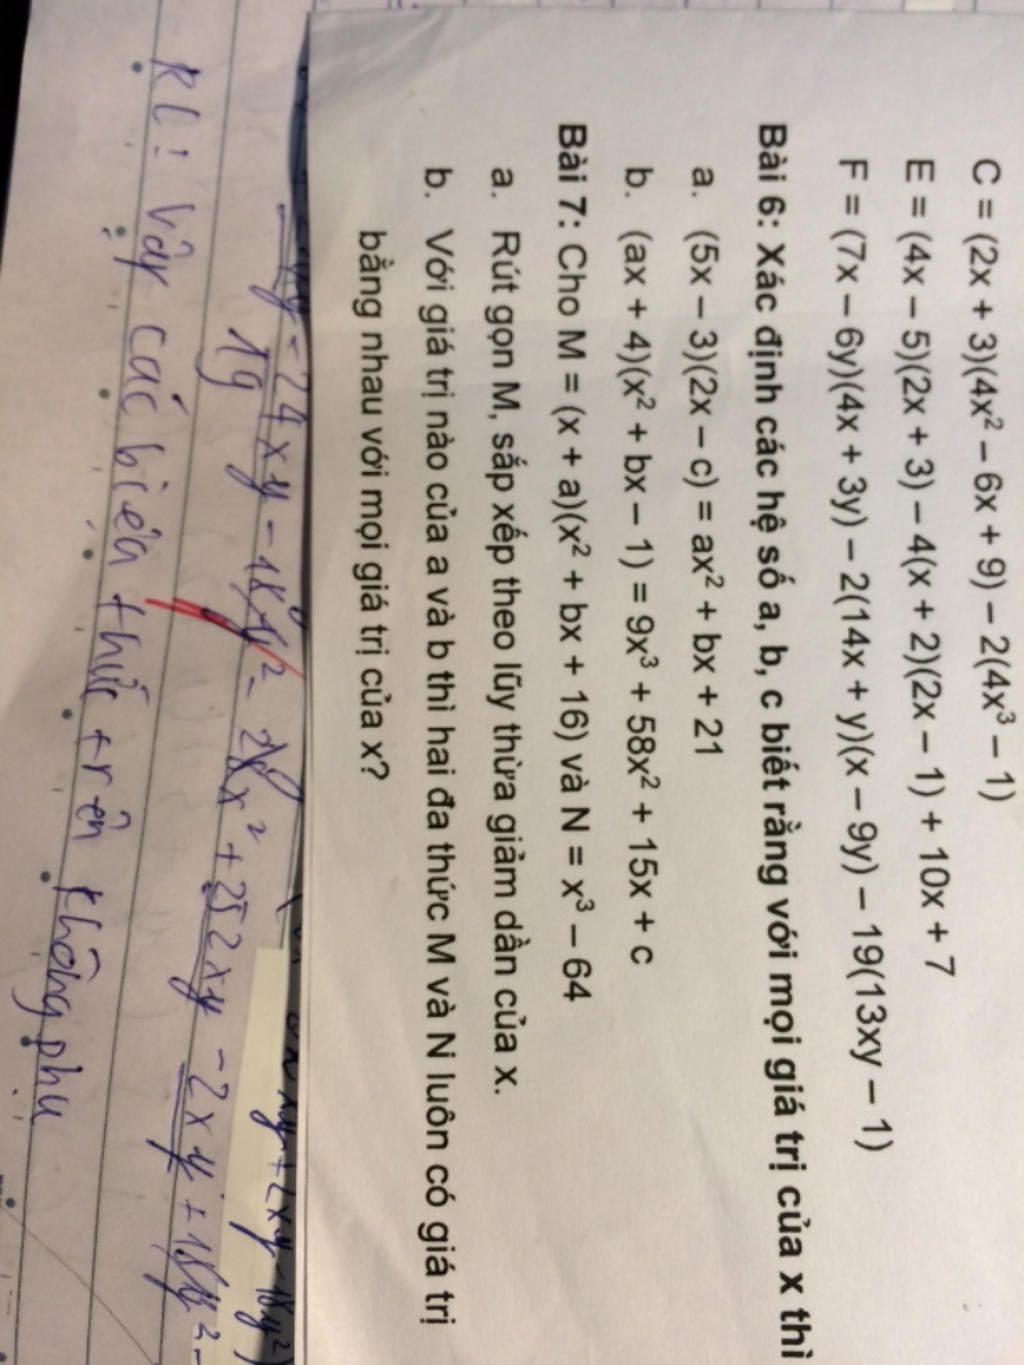 C = (2x + 3)(4x² – 6x + 9) – 2(4x³ – 1)
E = (4x – 5)(2x + 3) – 4(x + 2)(2x – 1) + 10x + 7
F = (7x – 6y)(4x + 3y) – 2(14x + y)(x – 9y) – 19(13xy – 1)
Bài 6: Xác định các hệ số a, b, c biết rằng với mọi giá trị của x thì
a. (5x – 3)(2x – c) = ax² + bx + 21
b. (ax + 4)(x² + bx – 1) = 9x³ + 58x² + 15x + c
Bài 7: Cho M = (x + a)(x² + bx + 16) và N = x³ – 64
a. Rút gọn M, sắp xếp theo lũy thừa giảm dần của x.
b. Với giá trị nào của a và b thì hai đa thức M và N luôn có giá trị
bằng nhau với mọi giá trị của x?
+ 2xy - 18y²)
- 24xy - 18y² - 28x² + 252xy - 2xy + 18y² -
19
KL: Vậy các biểu thức trên không phụ